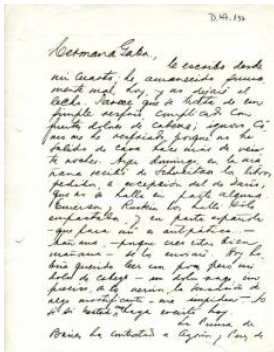 D.47.136
Hermana Gaba.
le escribo desde
mi cuarto; he amanecido suma-
mente mal, hoy, y no dejaré el
lecho. Parece que se trata de un
simple resfrío complicado con
fuertes dolores de cabeza; ignoro có-
mo me he resfriado, porque no he
salido de casa hace más de vein-
te noches. Ayer domingo, en la ma-
ñana recibí de los libros
pedidos, a excepción del de Darío,
que no se halla en parte alguna.
Emerson y Ruskin los hallé sólo
empastados, y en pasta española
- que para mí es antipática. -
mañana, - porque creo estar bien
mañana - se los enviaré. Hoy ha-
bría querido leer un poco, pero mi
dolor de cabeza - un dolor
a la sensación de
algo mortificante - me impiden. Yo
sí hasta hoy.
La Prensa de
Buenos Aires ha contratado a